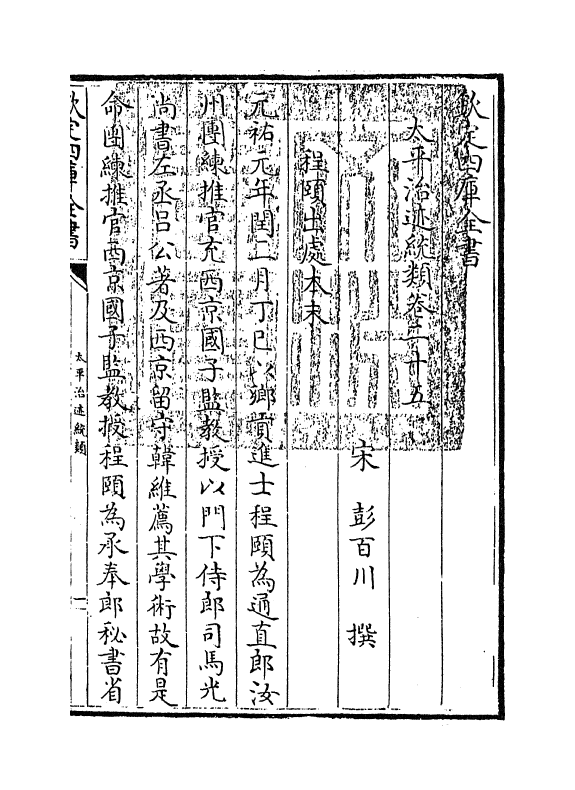 欽定四庫全書
太平治迹統類卷二十五
宋 彭百川 撰
程頤出處本末
元祐元年閏二月丁巳以鄉貢進士程頤為通直郎汝
州團練推官充西京國子監教授以門下侍郎司馬光
尚書左丞呂公著及西京留守韓維薦其學術故有是
命團練推官西京國子監教授程頤為承奉郎秘書省
欽定四庫全書
太平治迹統類
一